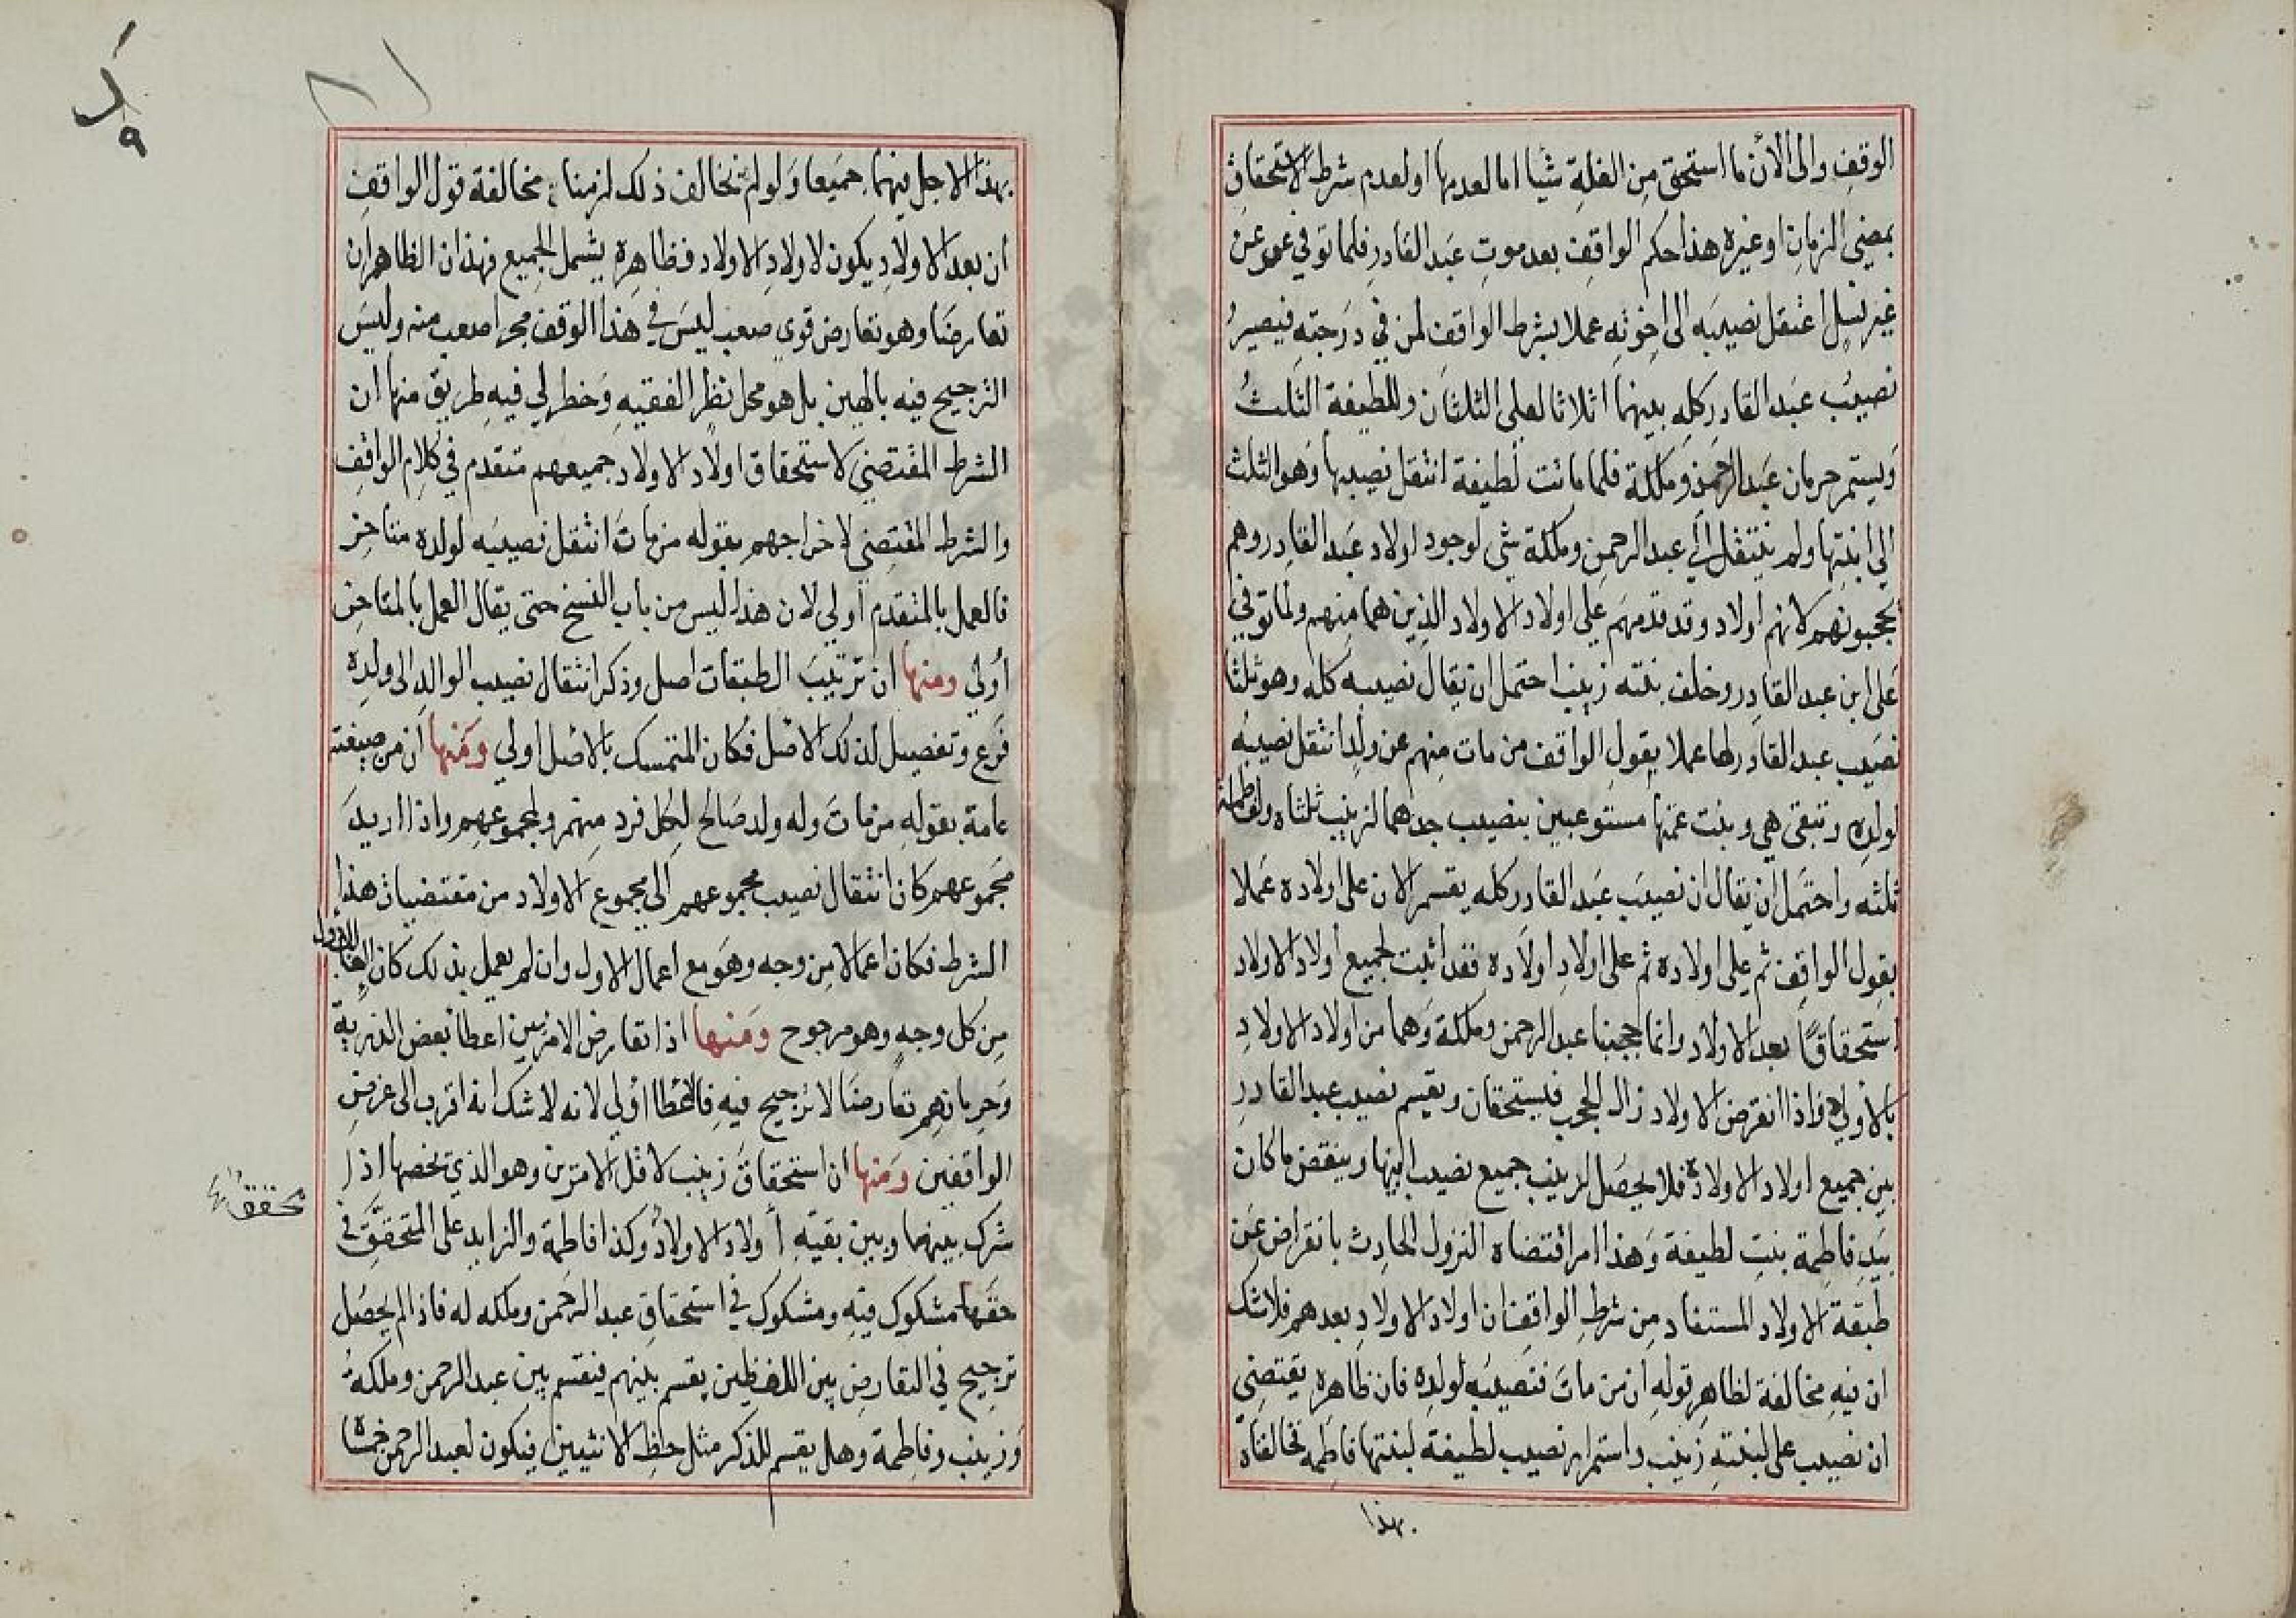 الوقف والى الأن ما استحق من الغلة شيا اما لعدمها او لعدم شرط الاستحقاق
بمضى الزمان او غيره هذا حكم الواقف بعد موت عبد القادر فلما توفي عمر عن
غير نسل انتقل نصيبه الى اخوته عملا بشرط الواقف لمن في درجته فيصير
نصيب عبد القادر كله بينهما اثلاثا لعلى الثلثان وللطيفة الثلث
ويستمر حرمان عبد الرحمن وملكة فلما ماتت لطيفة انتقل نصيبها وهو الثلث
الى ابنتها ولم ينتقل الى عبد الرحمن وملكة شى لوجود اولاد عبد القادر وهم
يحجبونهم لانهم اولاد وقد قدمهم على اولاد الاولاد الذين هما منهم ولما توفي
على ابن عبد القادر وخلف بنته زينب احتمل ان يقال نصيبه كله وهو ثلثا
نصيب عبد القادر لها عملا بقول الواقف من مات منهم عن ولد انتقل نصيبه
لولده وتبقى هي وبنت عمتها مستوعبين نصيب جدهما لزينب ثلثاه ولفاطمة
ثلثه واحتمل ان يقال ان نصيب عبد القادر كله يقسم الان على اولاده عملا
بقول الواقف ثم على اولاده ثم على اولاد اولاده فقد اثبت لجميع اولاد الاولاد
استحقاقا بعد الاولاد وانما حجبنا عبد الرحمن وملكة وهما من اولاد الاولاد
بالاولاد فاذا انقرض الاولاد زال الحجب فيستحقان ويقسم نصيب عبد القادر
بين جميع اولاد الاولاد فلا يحصل لزينب جميع نصيب ابيها وينقض ما كان
بيد فاطمة بنت لطيفة وهذا امر اقتضاه النزول الحادث بانقراض عن
طبقة الاولاد المستفاد من شرط الواقف ان اولاد الاولاد بعدهم فلا شك
ان فيه مخالفة لظاهر قوله ان من مات فنصيبه لولده فان ظاهره يقتضي
ان نصيب على لبنته زينب واستمرار نصيب لطيفة لبنتها فاطمة فخالفناه
بهذا
بهذا الاجل فيهما جميعا ولو لم نخالف ذلك لزمنا مخالفة قول الواقف
ان بعد الاولاد يكون لاولاد الاولاد فظاهره يشمل الجميع فهذان الظاهران
تعارضا وهو تعارض قوي صعب ليس في هذا الوقف محرا صعب منه وليس
الترجيح فيه بالهين بل هو محل نظر الفقيه وخطر لي فيه طريق منها ان
الشرط المقتضي لاستحقاق اولاد الاولاد جميعهم متقدم في كلام الواقف
والشرط المقتضي لاخراجهم بقوله من مات انتقل نصيبه لولده متاخر
فالعمل بالمتقدم اولي لان هذا ليس من باب النسخ حتى يقال العمل بالمتاخر
أولي ومنها ان ترتيب الطبقات اصل وذكر انتقال نصيب الوالد الى ولده
فرع وتفصيل لذلك الاصل فكان المتمسك بالاصل اولي ومنها ان من صيغته
عامة بقوله من مات وله ولد صالح لكل فرد منهم ولمجموعهم واذا اريد
مجموعهم كان انتقال نصيب مجموعهم الى مجموع الاولاد من مقتضيات هذا
الشرط فكان اعمالا من وجه وهو مع اعمال الاول وان لم يعمل بذلك كان الغاء للاول
من كل وجه وهو مرجوح ومنها اذا تعارض الامرين اعطا بعض الذرية
وحرمانهم تعارضا لا ترجيح فيه فالاعطا اولي لانه لا شك انه اقرب الى غرض
الواقفين ومنها ان استحقاق زينب لاقل الامرين وهو الذي تخصها اذا
شرك بينهما وبين بقية أولاد الاولاد وكذا فاطمة والزايد على المتحقق في
حقها مشكوك فيه ومشكوك في استحقاق عبد الرحمن وملكه له فاذا لم يحصل
ترجيح في التعارض بين اللفظين يقسم بينهم فيقسم بين عبد الرحمن وملكه
وزينب وفاطمة وهل يقسم للذكر مثل حظ الانثيين فيكون لعبد الرحمن خمساه